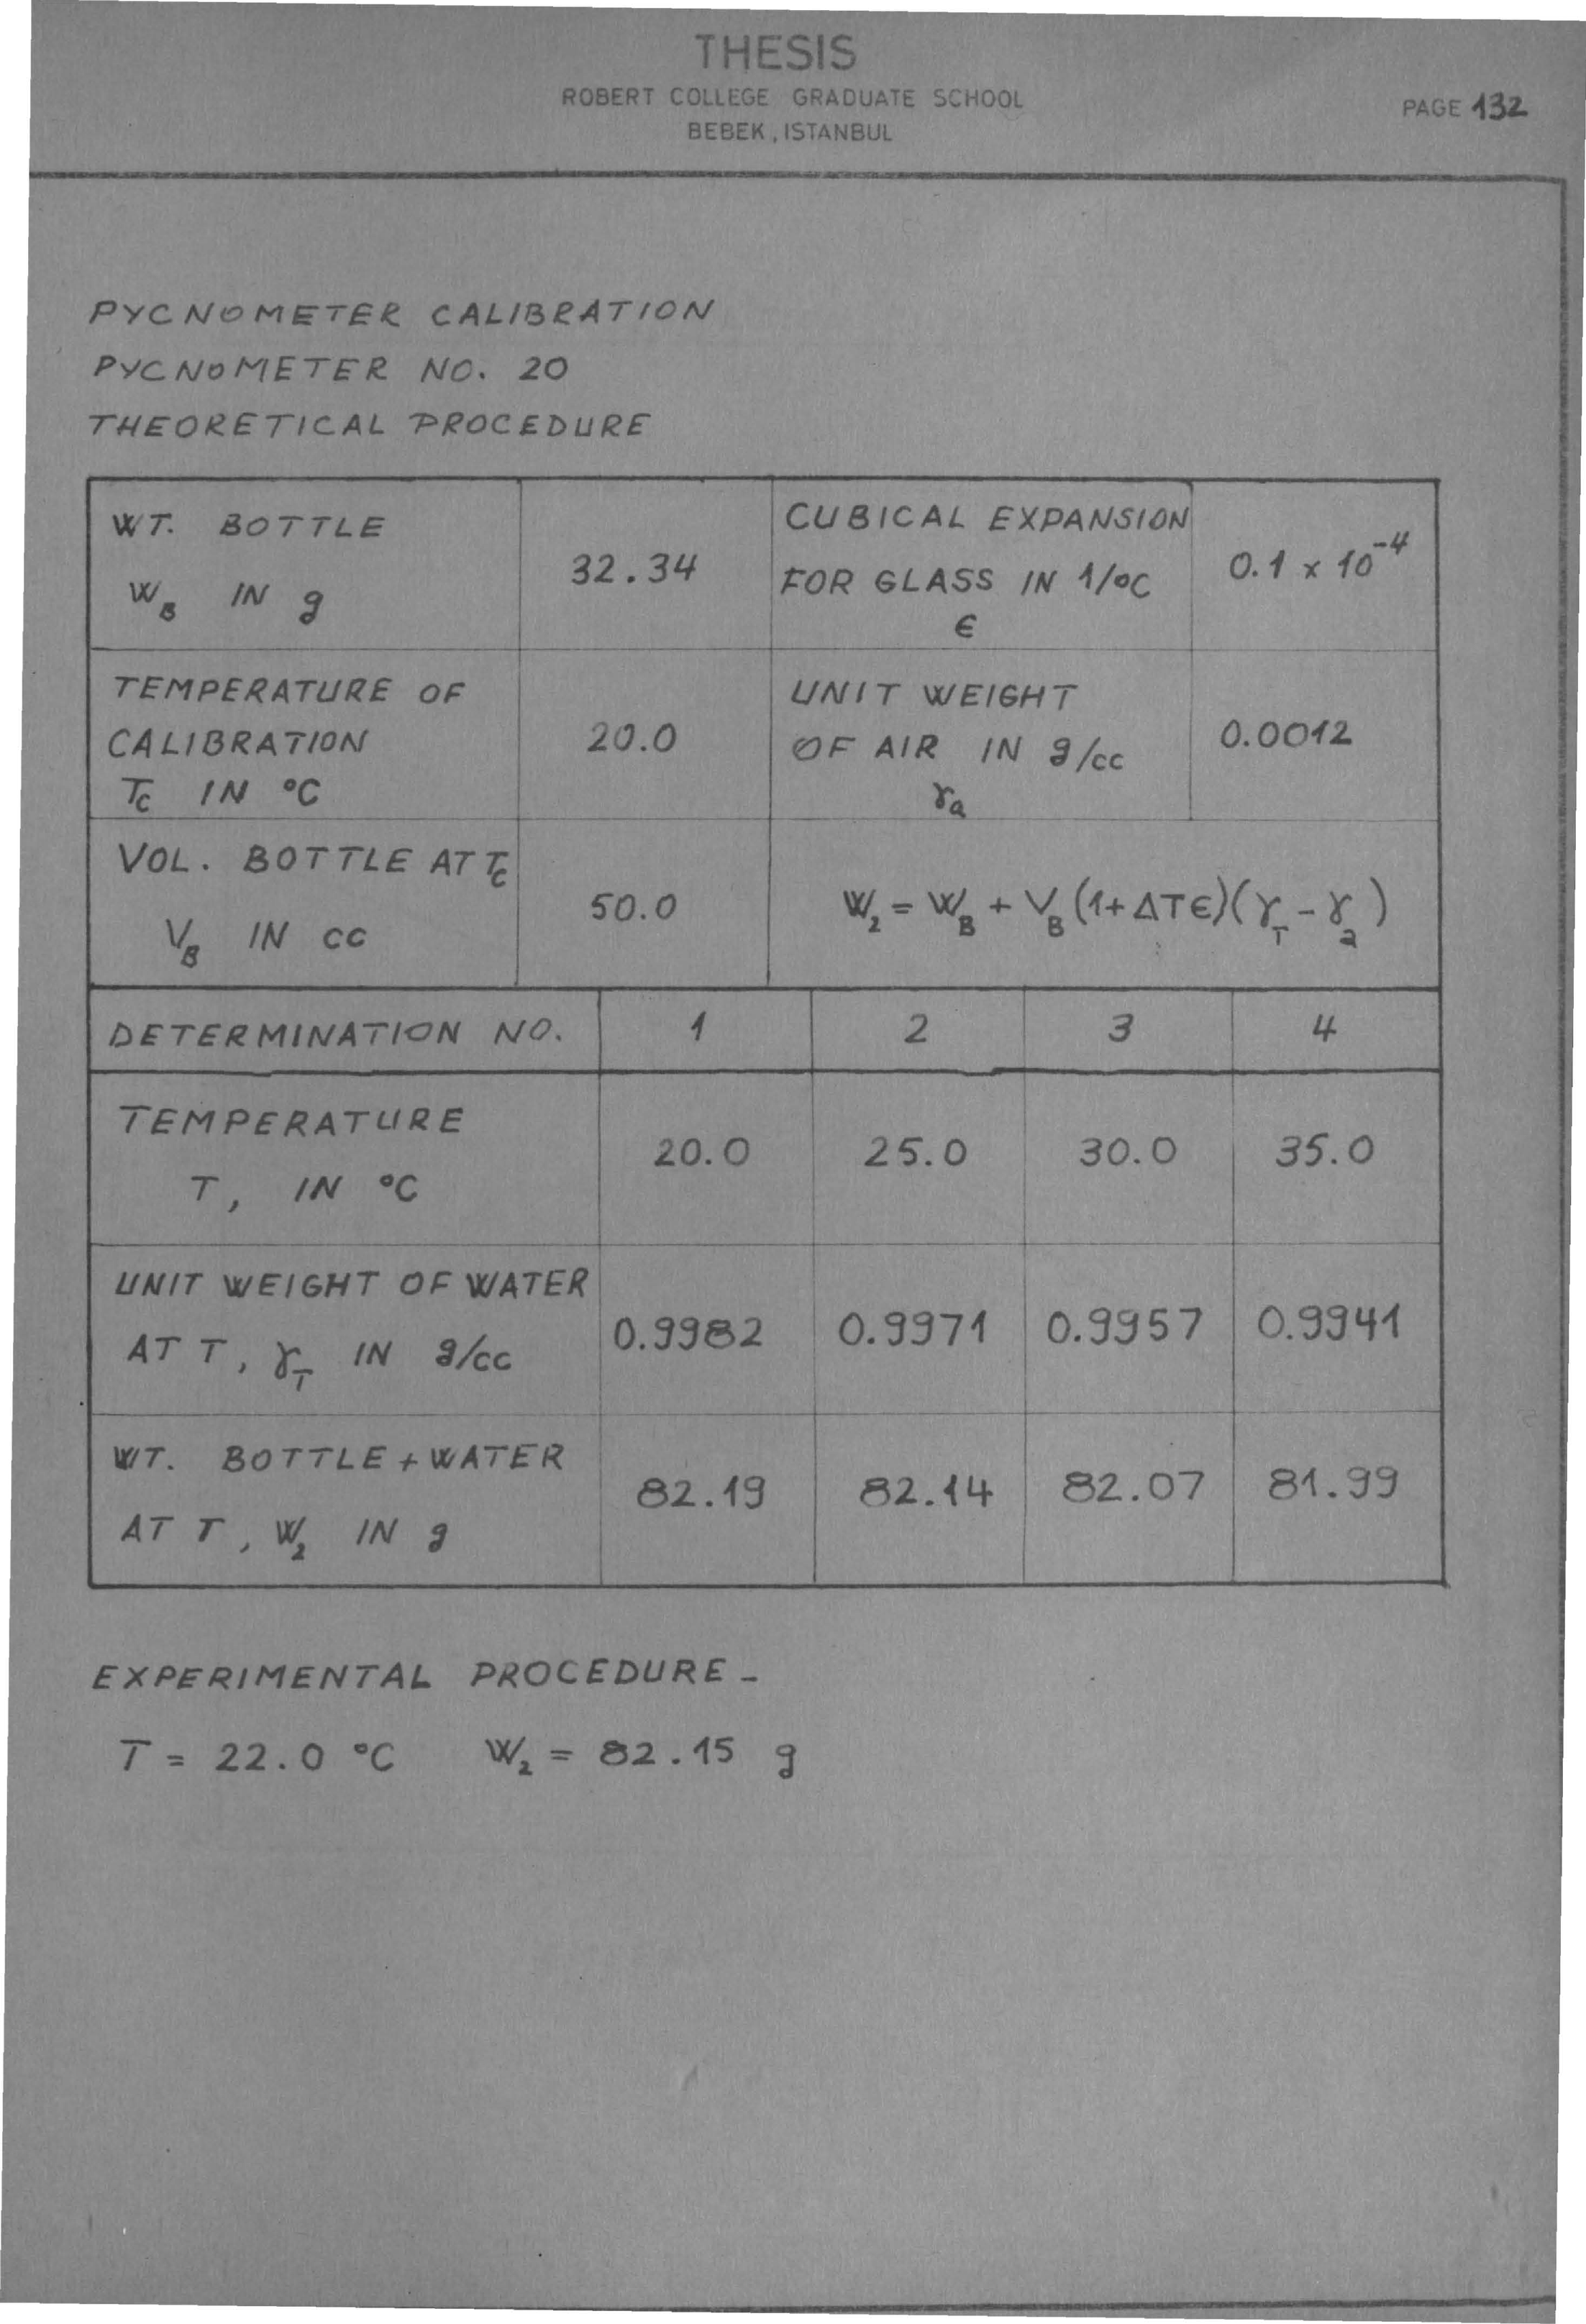 THESIS
ROBERT COLLEGE GRADUATE SCHOOL
BEBEK, ISTANBUL
PAGE 132
PYCNOMETER CALIBRATION
PYCNOMETER NO. 20
THEORETICAL PROCEDURE
WT. BOTTLE
W_B IN g
32.34
CUBICAL EXPANSION
FOR GLASS IN 1/°C
ϵ
0.1 x 10^-4
TEMPERATURE OF
CALIBRATION
T_C IN °C
20.0
UNIT WEIGHT
OF AIR IN g/cc
γ_a
0.0012
VOL. BOTTLE AT T_C
V_B IN cc
50.0
W_2 = W_B + V_B (1+ΔTϵ)(γ_T - γ_a)
DETERMINATION NO. 1 2 3 4
TEMPERATURE
T, IN °C
20.0 25.0 30.0 35.0
UNIT WEIGHT OF WATER
AT T, γ_T IN g/cc
0.9982 0.9971 0.9957 0.9941
WT. BOTTLE + WATER
AT T, W_2 IN g
82.19 82.14 82.07 81.99
EXPERIMENTAL PROCEDURE -
T = 22.0 °C W_2 = 82.15 g